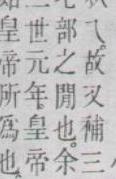 故又補三
部之閒也。余
二世元年皇帝
皇帝所爲也。